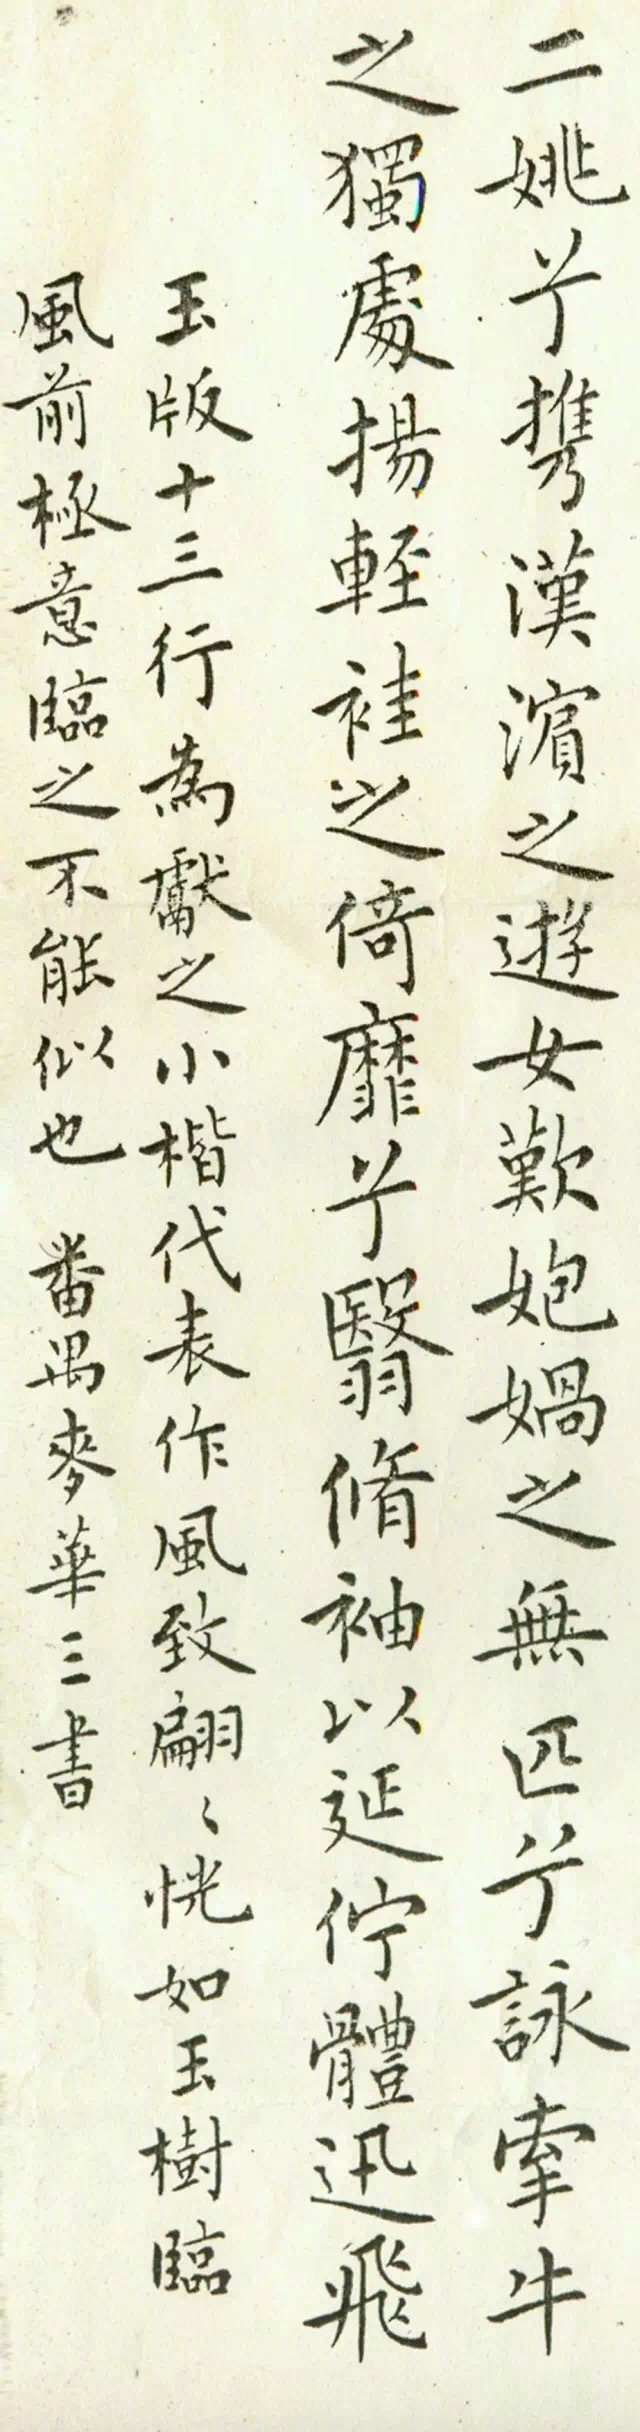 二姚兮攜漢濵之遊女歎㚿媧之無匹兮詠牽牛
之獨處揚輊袿之倚靡兮翳脩袖以延佇體迅飛
玉版十三行為獻之小楷代表作風致翩〻恍如玉樹臨
風前極意臨之不能似也 番禺麥華三書